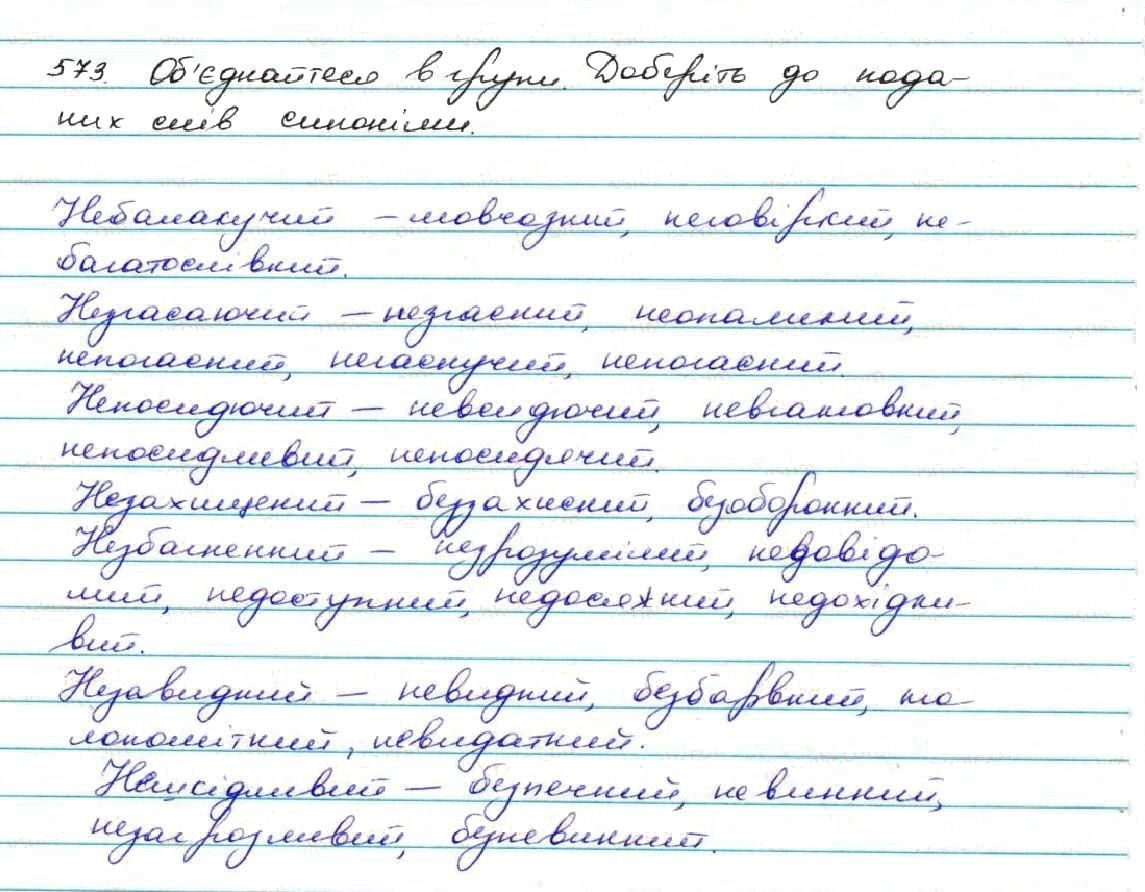 573. Об'єднайтеся в групи. Доберіть до пода-
них слів синоніми.
Небалакучий – мовчазний, неговіркий, не-
багатослівний.
Незгасаючий – незгасний, неопалимий,
непогасний, негаснучий, непогасний.
Непосидючий – невсидючий, невгамовний,
непосидливий, непосидячий.
Незахищений – беззахисний, безоборонний.
Незбагненний – незрозумілий, недовідо-
мий, недоступний, недосяжний, недохідли-
вий.
Незавидний – невидний, безбарвний, ма-
лопомітний, невидатний.
Нешкідливий – безпечний, невинний,
незагрозливий, безневинний.